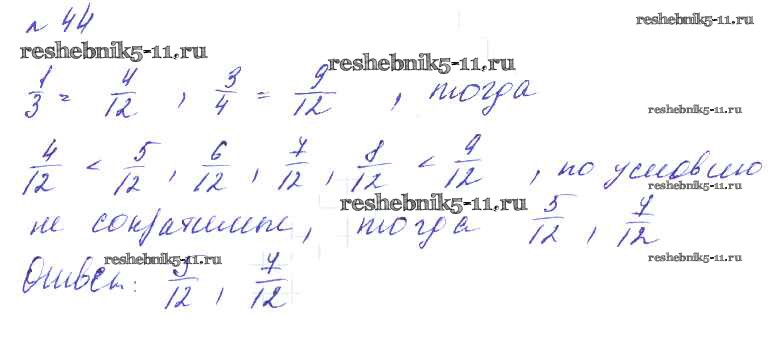 № 44
reshebnik5-11.ru
reshebnik5-11.ru
reshebnik5-11.ru
1/3 = 4/12 , 3/4 = 9/12 , тогда
reshebnik5-11.ru
4/12 < 5/12 , 6/12 , 7/12 , 8/12 < 9/12 , по условию
reshebnik5-11.ru
reshebnik5-11.ru
не сократимые, тогда 5/12 , 7/12
reshebnik5-11.ru
reshebnik5-11.ru
Ответ: 5/12 , 7/12